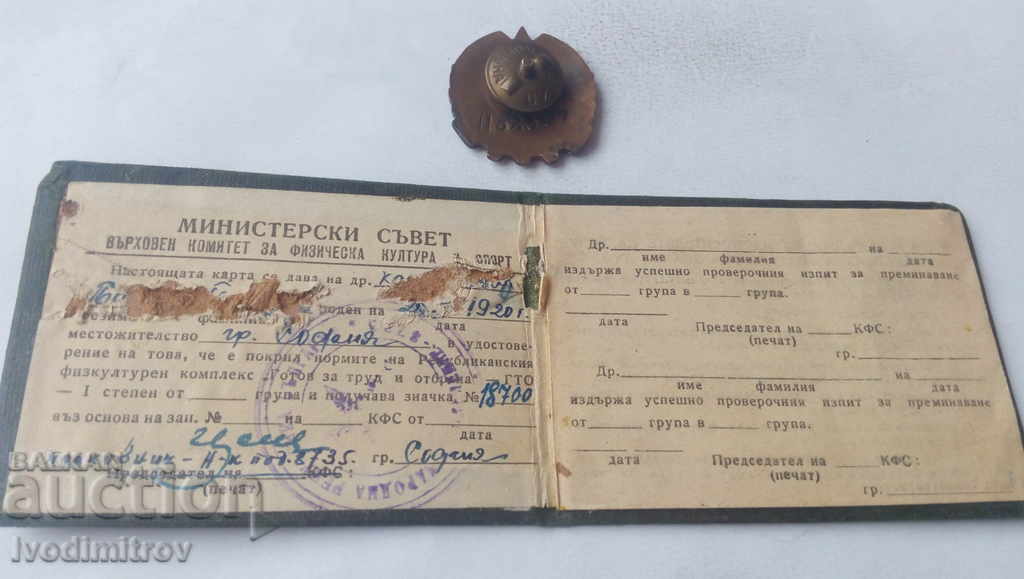 МИНИСТЕРСКИ СЪВЕТ
ВЪРХОВЕН КОМИТЕТ ЗА ФИЗИЧЕСКА КУЛТУРА И СПОРТ
Настоящата карта се дава на др.
роден на 1920 г.
дата
местожителство гр. София в удостове-
рение на това, че е покрил нормите на Републиканския
физкултурен комплекс Готов за труд и отбрана ГТО
— I степен от група и получава значка № 18700
въз основа на зап. № на КФС от
дата
полковник — Н-к под. 8735. гр. София
Председател на КФС:
(печат)
НАРОДНА РЕ
Др. на
име фамилия дата
издържа успешно проверочния изпит за преминаване
от група в група.
дата Председател на КФС:
(печат) гр.
Др. на
име фамилия дата
издържа успешно проверочния изпит за преминаване
от група в група.
дата Председател на КФС:
(печат) гр.
BALKAN
auction
Ivodimitrov